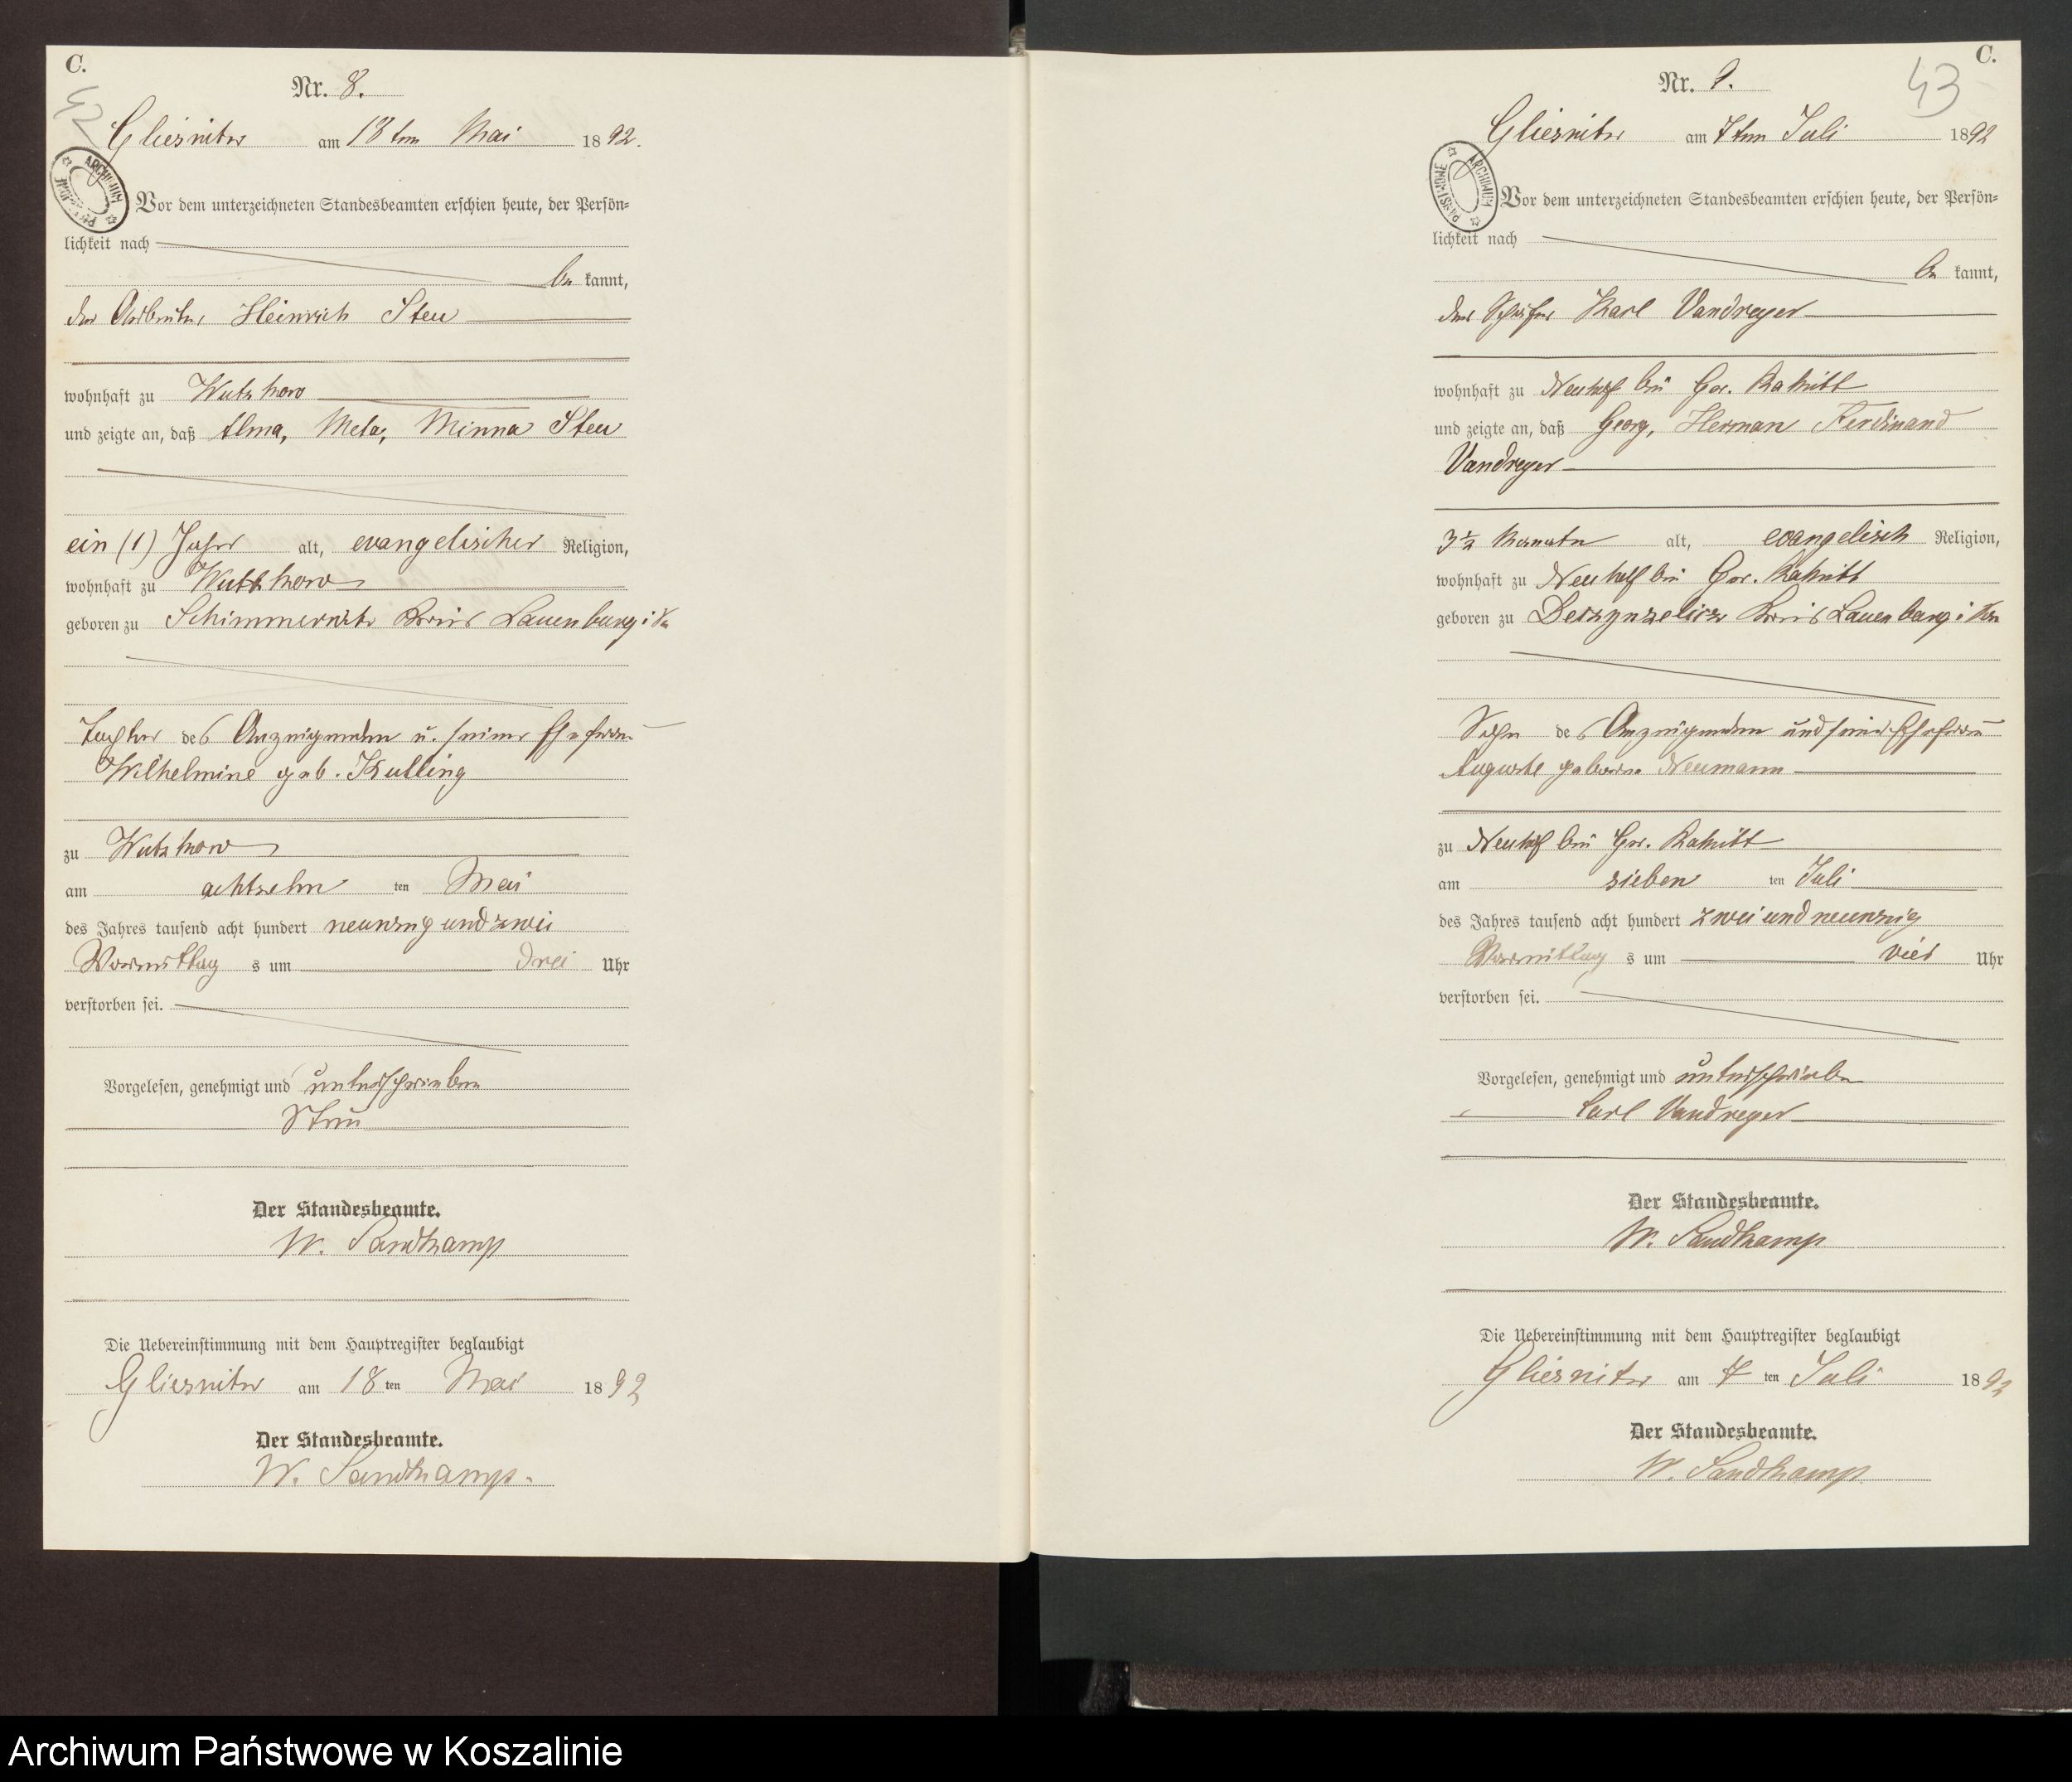 C.
Nr. 8.
42
Gliesnitz am 18ten Mai 1892.
ARCHIWUM PAŃSTWOWE
Vor dem unterzeichneten Standesbeamten erschien heute, der Persön-
lichkeit nach
be kannt,
der Arbeiter Heinrich Steu
wohnhaft zu Wutzkow
und zeigte an, daß Alma, Meta, Minna Steu
ein (1) Jahr alt, evangelischer Religion,
wohnhaft zu Wutzkow
geboren zu Schimmerwitz Kreis Lauenburg i
Tochter des Anzeigenden u. seiner Ehefrau
Wilhelmine geb. Kutling
zu Wutzkow
am achtzehn ten Mai
des Jahres tausend acht hundert neunzig und zwei
Vormittag s um drei Uhr
verstorben sei.
Vorgelesen, genehmigt und unterschrieben
Steu
Der Standesbeamte.
W. Sandkamp
Die Uebereinstimmung mit dem Hauptregister beglaubigt
Gliesnitz am 18 ten Mai 1892
Der Standesbeamte.
W. Sandkamp.
C.
Nr. 9.
43
Gliesnitz am 7ten Juli 1892
ARCHIWUM PAŃSTWOWE
Vor dem unterzeichneten Standesbeamten erschien heute, der Persön-
lichkeit nach
be kannt,
der Schäfer Karl Vandreyer
wohnhaft zu Neuhof bei Gr. Rakitt
und zeigte an, daß Georg, Herman Ferdinand
Vandreyer
3½ Monate alt, evangelisch Religion,
wohnhaft zu Neuhof bei Gr. Rakitt
geboren zu Kreis Lauenburg i
Sohn des Anzeigenden und seiner Ehefrau
Auguste geborne Neumann
zu Neuhof bei Gr. Rakitt
am sieben ten Juli
des Jahres tausend acht hundert zwei und neunzig
Vormittag s um vier Uhr
verstorben sei.
Vorgelesen, genehmigt und unterschrieben
Carl Vandreyer
Der Standesbeamte.
W. Sandkamp
Die Uebereinstimmung mit dem Hauptregister beglaubigt
Gliesnitz am 7 ten Juli 1892
Der Standesbeamte.
W. Sandkamp
Archiwum Państwowe w Koszalinie